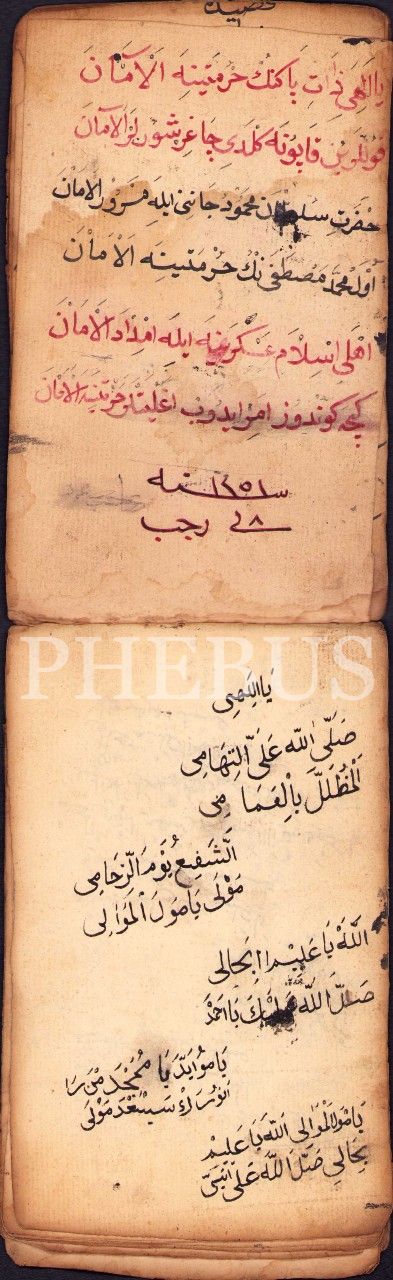 يا الهى ذات پاكنك حرمتينه الامان
قوللرين قاپونه كلدى چاغرشورلر الامان
حضرت سلطان محمود جاننى ايله مسرور الامان
اول محمد مصطفى نك حرمتينه الامان
اهلى اسلام عسكرينه ايله امداد الامان
كيجه كوندوز امر ايدوب اغليانلر حرمتينه الامان
سنه ١٢٥١
٨ فى رجب
PHEBUS
يَا اِلٰهِى
صَلِّى اللّٰه عَلَى التِهَامِى
اَلْمُظَلَّلَ بِالْغَمَامِى
اَلشَّفِيع يَوْمَ الزِّحَامِى
مَوْلَى يَا مَوْلَ الْمَوَالِى
اَللّٰه يَا عَلِيْم اا بَحَالِى
صَلَّ اللّٰه عليك يَا اَحْمَدْ
يَا مُوَأيَّدْ يَا مُمَجَّدْ مَنْ رَا
نُورَكْ سَيَسْعَدْ مَوْلَى
يَا مَوْلَ الْمَوَالِى اَللّٰه يَا عَلِيم
بِحَالِى صَلَّ اللّٰه عَلَى النَّبِى